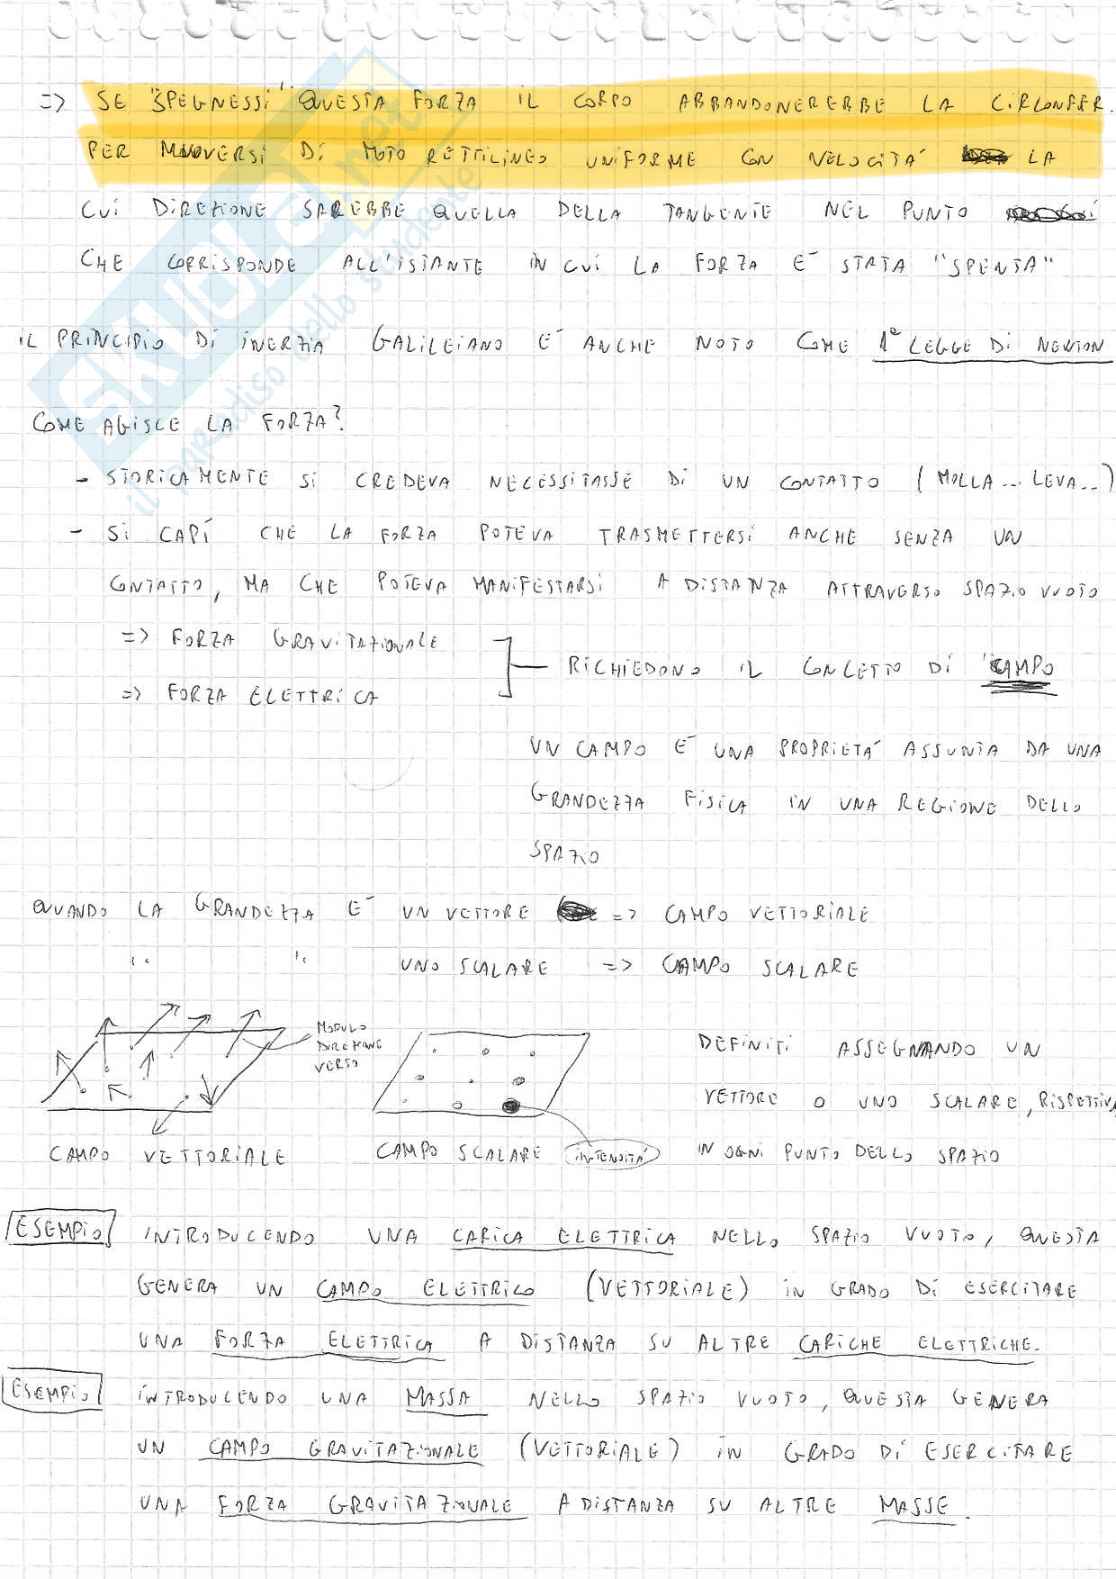 => SE "SPEGNESSI" QUESTA FORZA IL CORPO ABBANDONEREBBE LA CIRCONFER.
PER MUOVERSI DI MOTO RETTILINEO UNIFORME CON VELOCITA' LA
CUI DIREZIONE SAREBBE QUELLA DELLA TANGENTE NEL PUNTO
CHE CORRISPONDE ALL'ISTANTE IN CUI LA FORZA E' STATA "SPENTA"
IL PRINCIPIO DI INERZIA GALILEIANO E' ANCHE NOTO COME 1ª LEGGE DI NEWTON
COME AGISCE LA FORZA?
- STORICAMENTE SI CREDEVA NECESSITASSE DI UN CONTATTO (MOLLA... LEVA...)
- SI CAPÍ CHE LA FORZA POTEVA TRASMETTERSI ANCHE SENZA UN
CONTATTO, MA CHE POTEVA MANIFESTARSI A DISTANZA ATTRAVERSO SPAZIO VUOTO
=> FORZA GRAVITAZIONALE
=> FORZA ELETTRICA
RICHIEDONO IL CONCETTO DI CAMPO
UN CAMPO E' UNA PROPRIETA' ASSUNTA DA UNA
GRANDEZZA FISICA IN UNA REGIONE DELLO
SPAZIO
QUANDO LA GRANDEZZA E' UN VETTORE => CAMPO VETTORIALE
" " UNO SCALARE => CAMPO SCALARE
MODULO
DIREZIONE
VERSO
CAMPO VETTORIALE
CAMPO SCALARE INTENSITÁ
DEFINITI ASSEGNANDO UN
VETTORE O UNO SCALARE, RISPETTIV.
IN OGNI PUNTO DELLO SPAZIO
ESEMPIO INTRODUCENDO UNA CARICA ELETTRICA NELLO SPAZIO VUOTO, QUESTA
GENERA UN CAMPO ELETTRICO (VETTORIALE) IN GRADO DI ESERCITARE
UNA FORZA ELETTRICA A DISTANZA SU ALTRE CARICHE ELETTRICHE.
ESEMPIO INTRODUCENDO UNA MASSA NELLO SPAZIO VUOTO, QUESTA GENERA
UN CAMPO GRAVITAZIONALE (VETTORIALE) IN GRADO DI ESERCITARE
UNA FORZA GRAVITAZIONALE A DISTANZA SU ALTRE MASSE.
SKUOLA.net
il paradiso dello studente